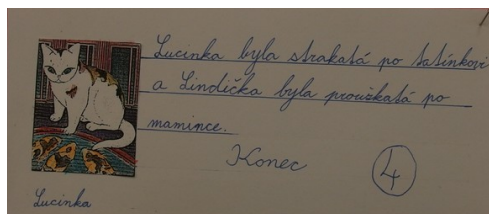 Lucinka byla strakatá po tatínkovi
a Lindička byla proužkatá po
mamince.
Konec
4
Lucinka